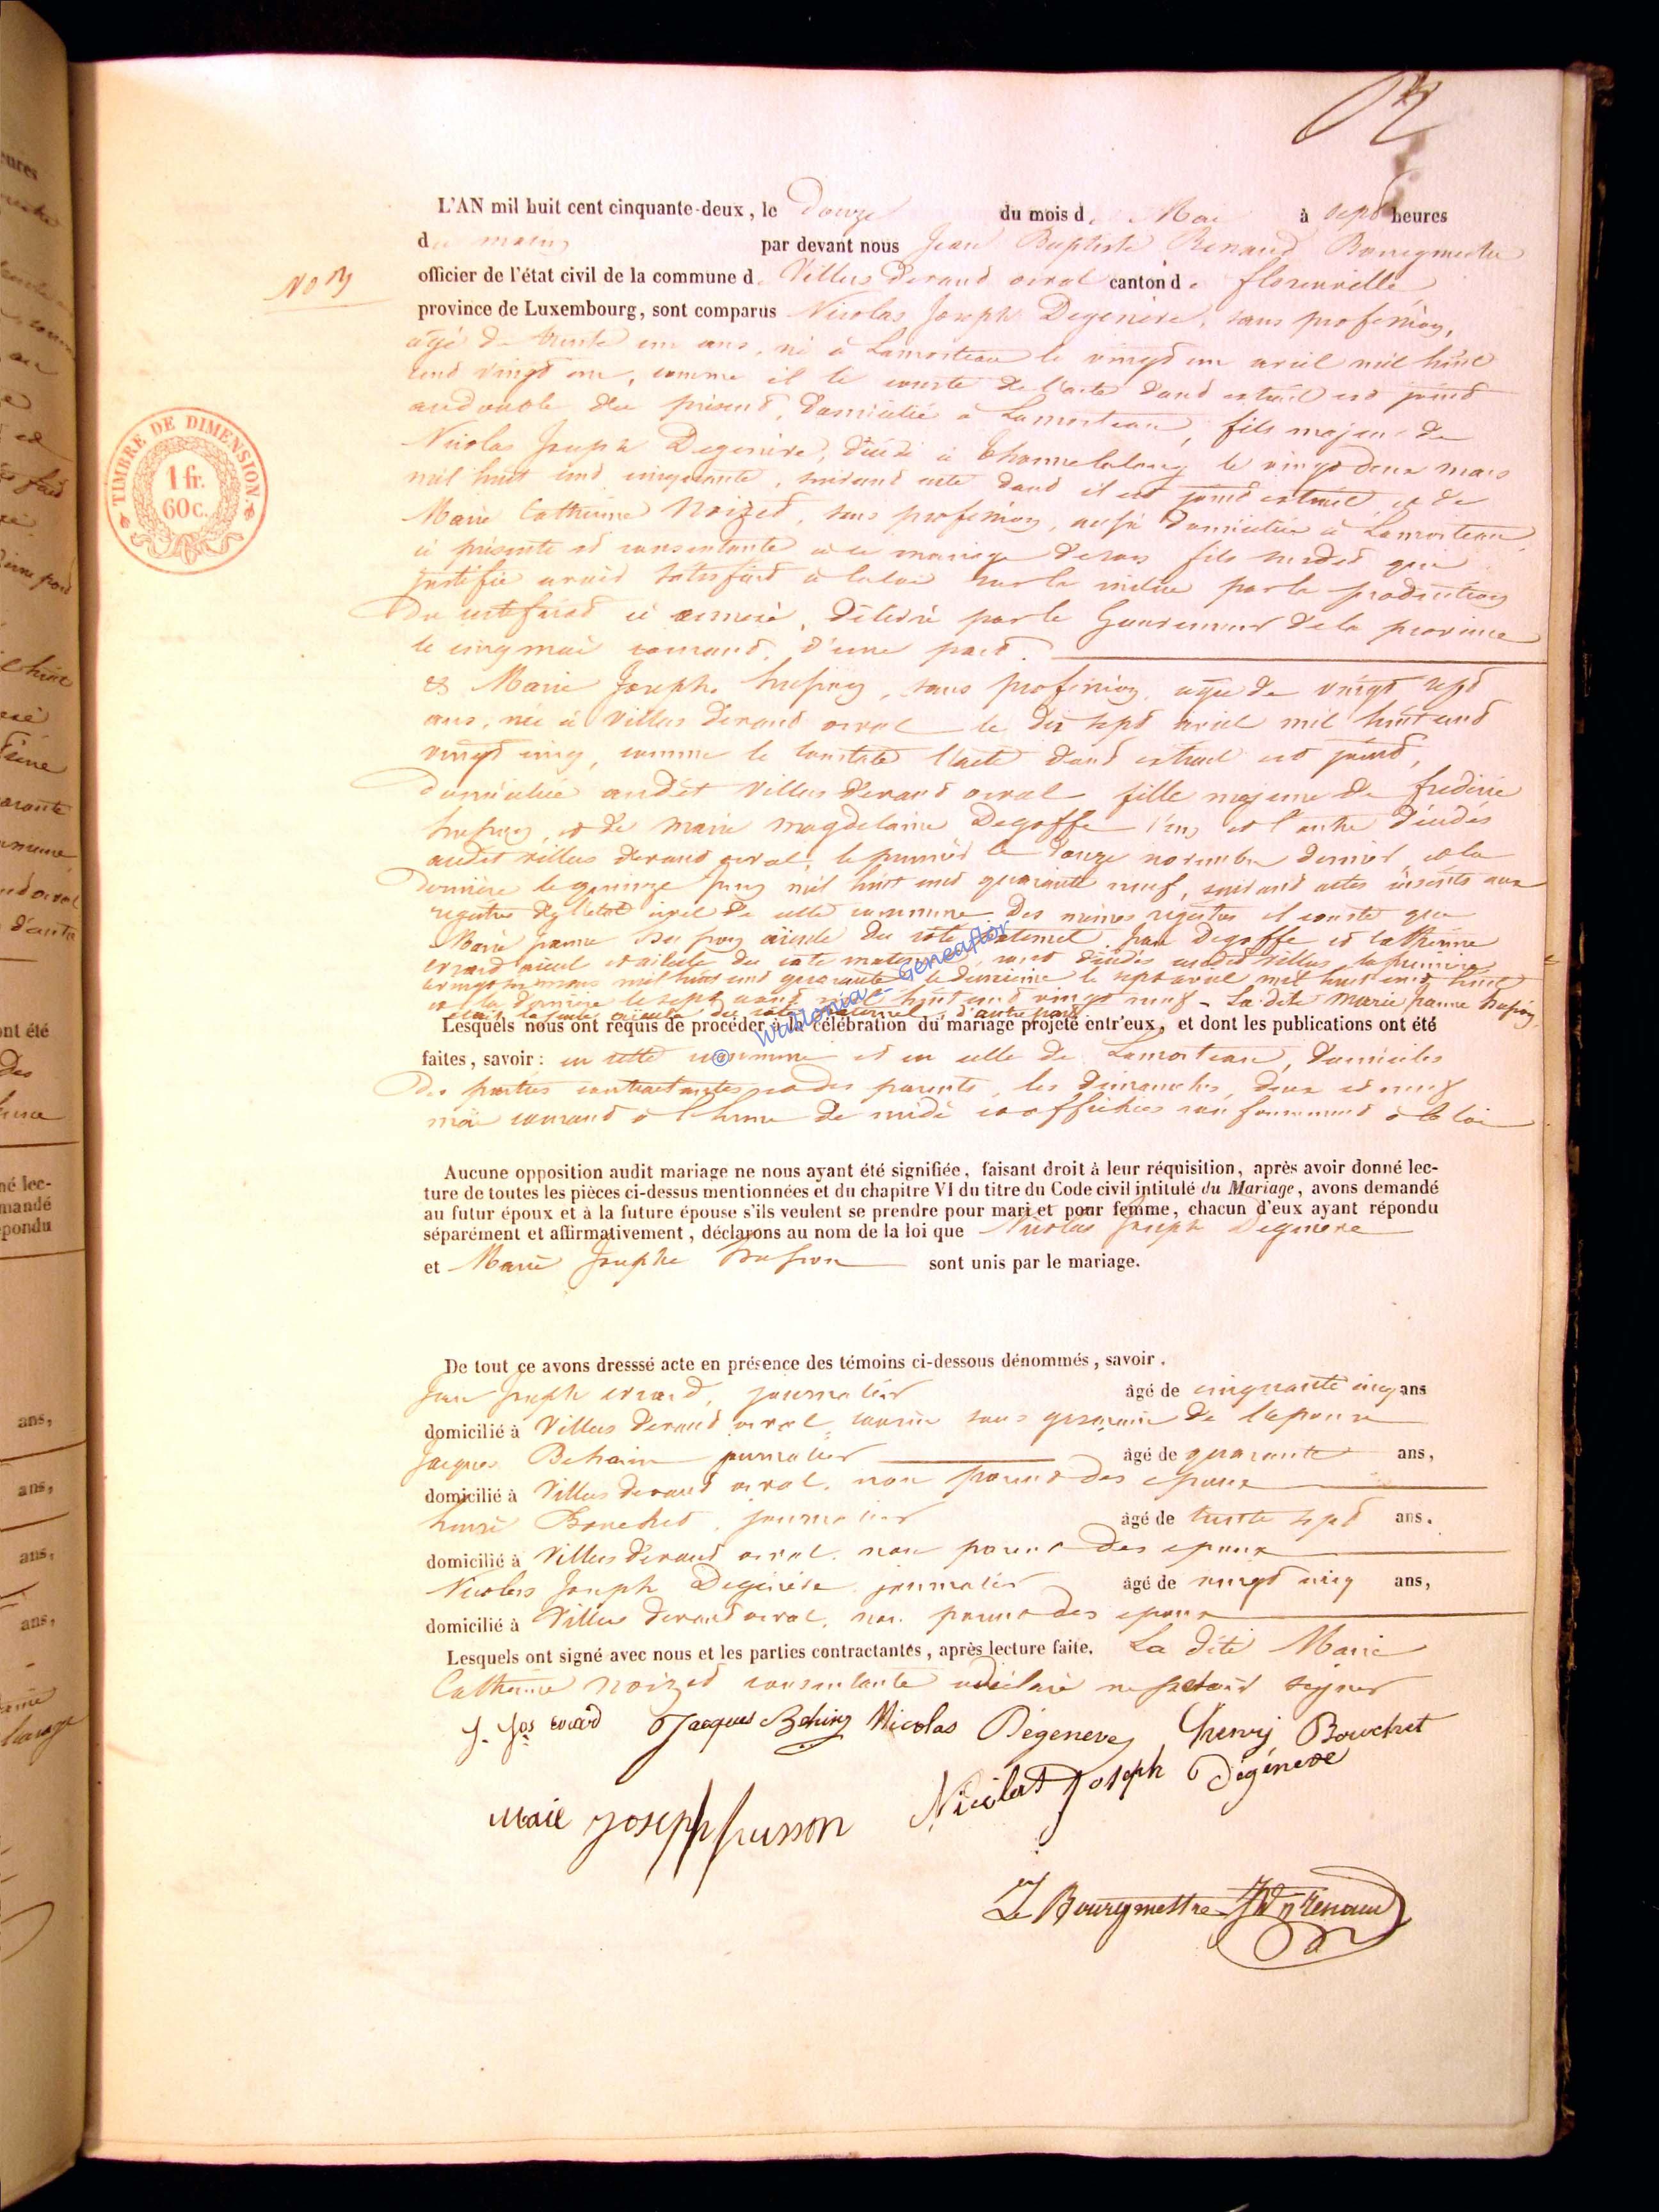 L'AN mil huit cent cinquante-deux, le Douze du mois de Mai à sept heures
du matin par devant nous Jean Baptiste Renaud Bourgmestre
officier de l'état civil de la commune de Villers devant orval canton de florenville
No
province de Luxembourg, sont comparus Nicolas Joseph Degenève, sans profession,
agé de trente un ans, né à Lamorteau le vingt un avril mil huit
cent vingt un, comme il le conste de l'acte dont extrait est joint
au double du présent, domicilié à Lamorteau, fils majeur de
Nicolas Joseph Degenève, décédé à thonnelalong le vingt deux mars
mil huit cent cinquante, suivant acte dont il est joint extrait, et de
Marie Catherine Noized, sans profession, aussi domiciliée à Lamorteau,
ci présente et consentante à ce mariage de son fils susdit qui
justifie avoir satisfait à la loi sur la milice par la production
du certificat ci annexé, délivré par le Gouverneur de la province
le cinq mai courant, d'une part.
& Marie Josephe husson, sans profession, agée de vingt sept
ans, née à Villers devant orval le dix sept avril mil huit cent
vingt cinq, comme le constate l'acte dont extrait est joint,
domiciliée audit Villers devant orval fille majeure de frédéric
husson, et de marie magdelaine Degoffe l'un et l'autre décédés
audit villers devant orval, le premier le douze novembre dernier et la
dernière le quinze juin mil huit cent quarante neuf, suivant actes inscrits aux
registres de l'état civil de cette commune, des mêmes registres il conste que
Marie jeanne husson aïeule du côté paternel jean Degoffe et Catherine
evrard aïeul et aïeule du côté maternel, sont décédés audit villers la première
mil huit cent quarante la deuxième le sept avril mil huit cent huit
et la dernière le sept août mil huit cent vingt neuf - La dite Marie jeanne husson
aïeule du côté paternel, d'autre part
TIMBRE DE DIMENSION.
1 fr.
60 c.
© Wallonia - Geneaflor
Lesquels nous ont requis de procéder à la célébration du mariage projeté entr'eux, et dont les publications ont été
faites, savoir : en cette commune et en celle de Lamorteau, domiciles
des parties contractantes et des parents, les dimanches, deux et neuf
mai courant à l'heure de midi et affichées conformément à la loi
Aucune opposition audit mariage ne nous ayant été signifiée, faisant droit à leur réquisition, après avoir donné lec-
ture de toutes les pièces ci-dessus mentionnées et du chapitre VI du titre du Code civil intitulé du Mariage, avons demandé
au futur époux et à la future épouse s'ils veulent se prendre pour mari et pour femme, chacun d'eux ayant répondu
séparément et affirmativement, déclarons au nom de la loi que Nicolas Joseph Degeneve
et Marie Josephe husson sont unis par le mariage.
De tout ce avons dresssé acte en présence des témoins ci-dessous dénommés, savoir.
Jean Joseph evrard, journalier âgé de cinquante cinq ans
domicilié à Villers devant orval, cousin sous germain de l'epouse
Jacques Behain journalier âgé de quarante ans,
domicilié à Villers devant orval, non parent des epoux
henri Bouchet, journalier âgé de trente sept ans.
domicilié à Villers devant orval, non parent des epoux
Nicolas Joseph Degénève journalier âgé de vingt cinq ans,
domicilié à Villers devant orval, non parent des epoux
Lesquels ont signé avec nous et les parties contractantes, après lecture faite. La dite Marie
Catherine Noized consentante a déclaré ne savoir signer
J. Jos evrard Jacques Behing Nicolas Dégeneve henrij Bouchet
Nicolas Joseph Dégéneve
Marie joseph husson
Le Bourgmestre Renaud